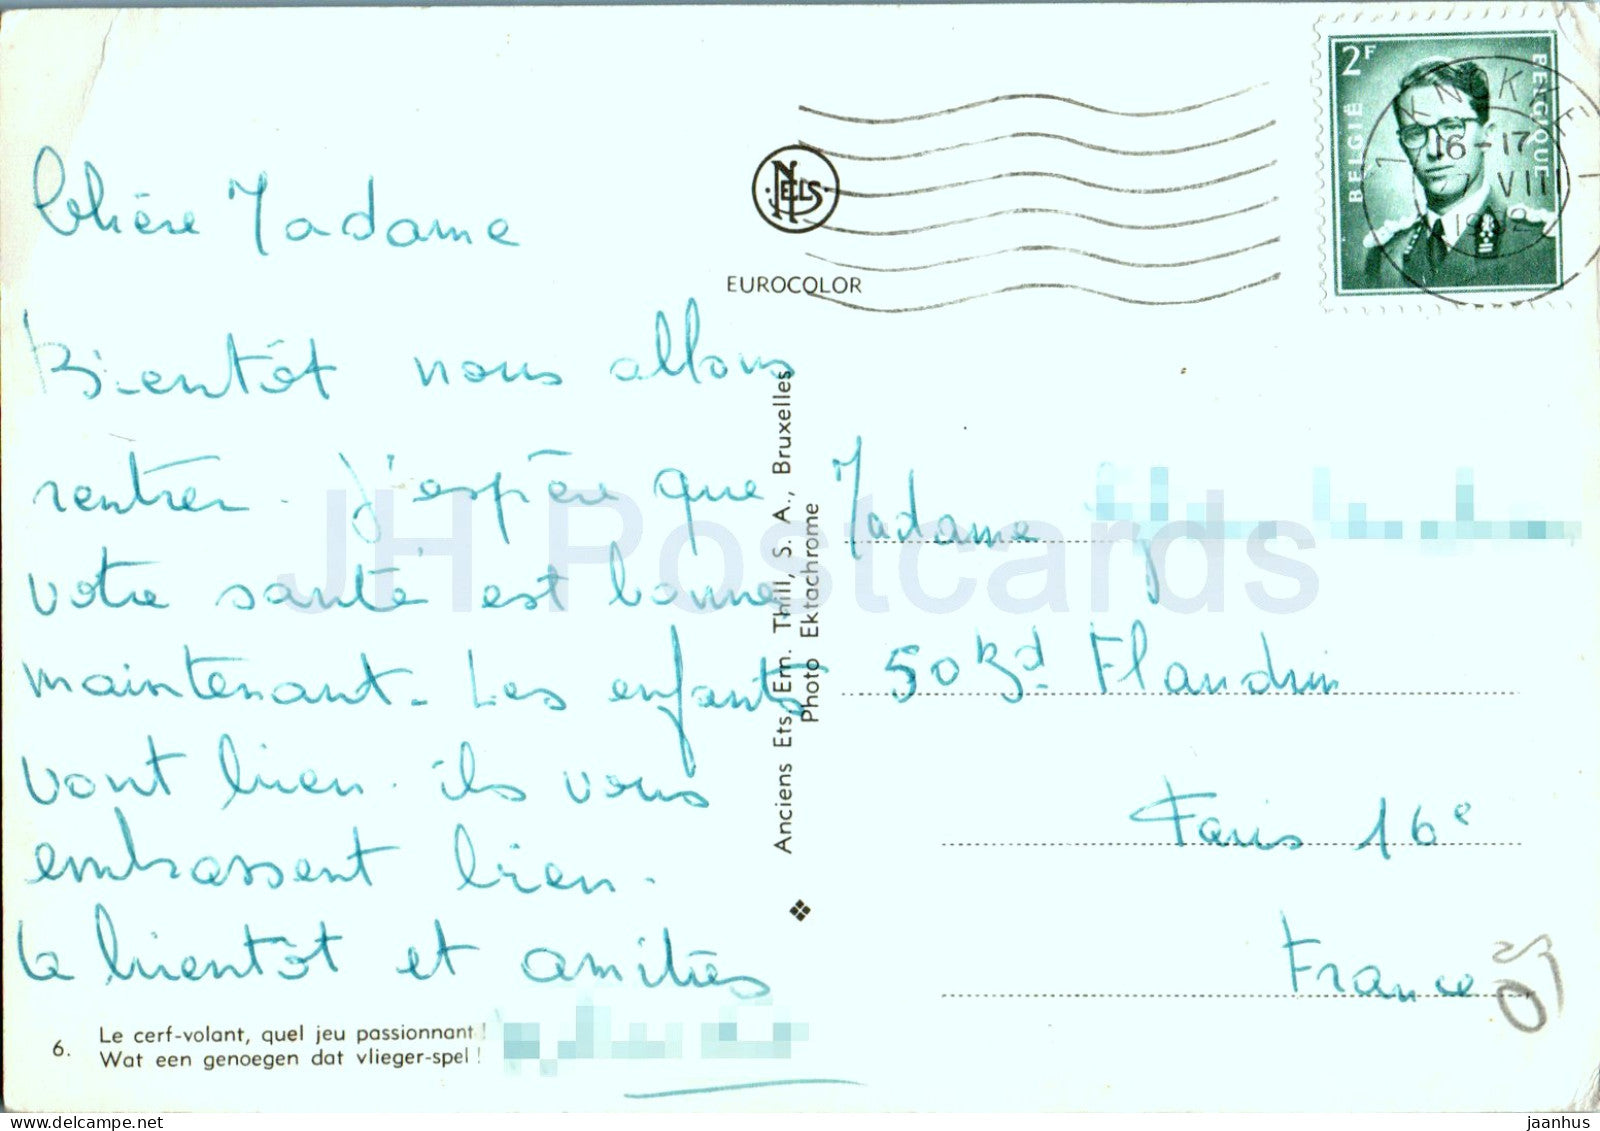 Chère Madame
Bientôt nous allons
rentrer. J'espère que
votre santé est bonne
maintenant. Les enfants
vont bien. ils vous
embrassent bien.
A bientôt et amitiés
6.
Le cerf-volant, quel jeu passionnant !
Wat een genoegen dat vlieger-spel !
NELS
EUROCOLOR
Anciens Ets. Em. Thill, S. A., Bruxelles
Photo Ektachrome
2F
BELGIË
BELGIQUE
KNOKKE
16-17
VII
Madame
50 Bd Flandrin
Paris 16e
France
JH Postcards
delcampe.net
jaanhus